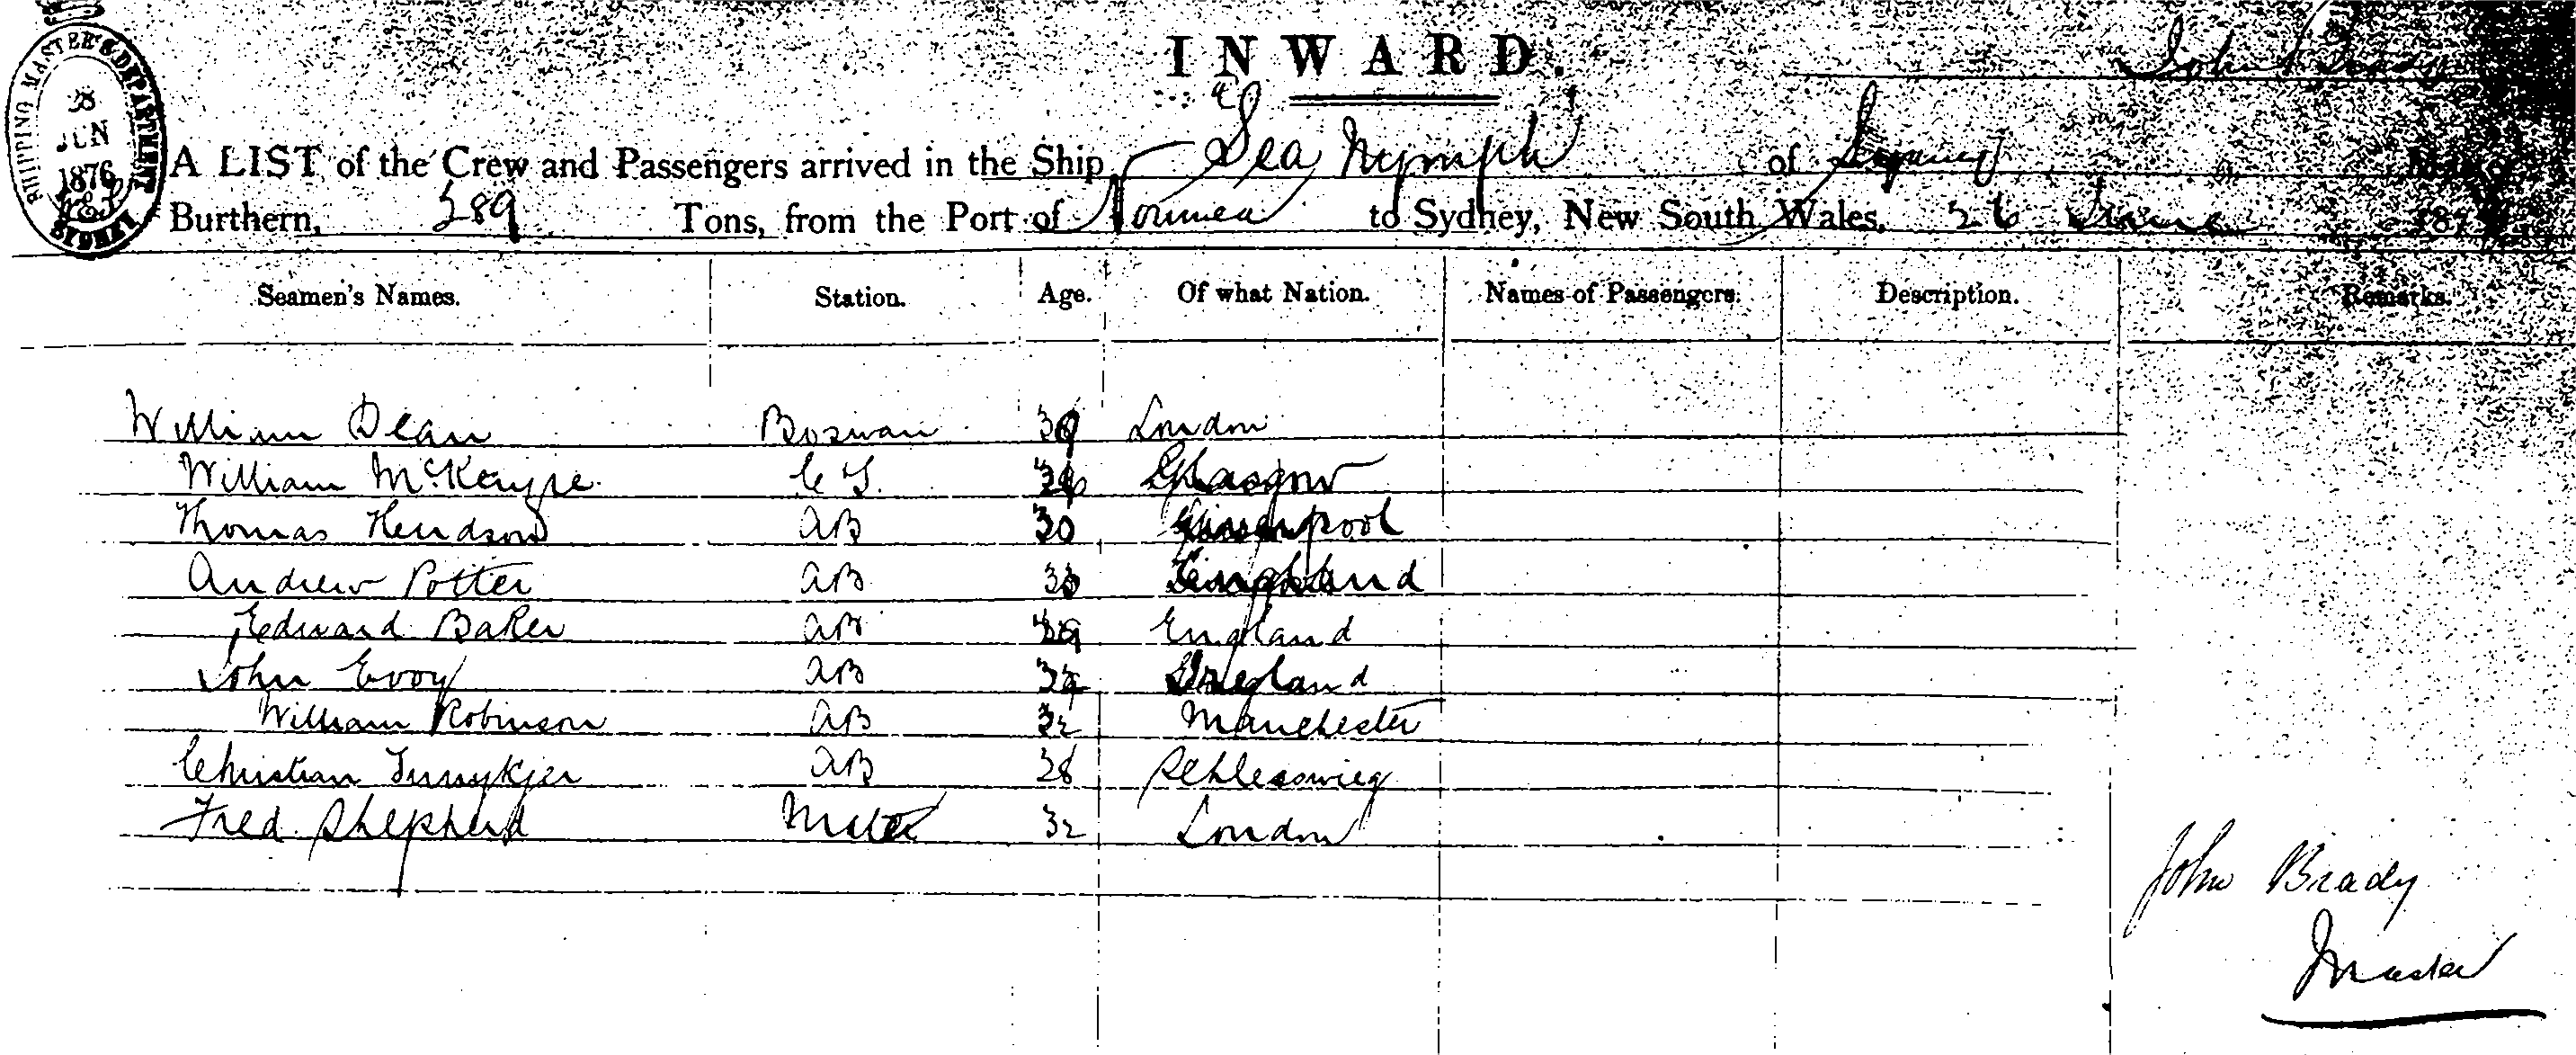 INWARD.
John Brady
SHIPPING MASTER'S DEPARTMENT
28
JUN
1876
SYDNEY
A LIST of the Crew and Passengers arrived in the Ship "Sea Nymph" of Sydney
Burthern, 589 Tons, from the Port of Noumea to Sydney, New South Wales, 26 June 187
Seamen's Names. Station. Age. Of what Nation. Names of Passengers. Description. Remarks.
William Dean Boswan 39 London
William McKenzie C S. Glasgow
Thomas Hendson AB 30 Liverpool
Andrew Potter AB England
Edward Baker AB England
John Evoy AB
William Robinson AB 32 Manchester
Christian AB 28 Schlesswieg
Fred Shepherd Mate 32 London
John Brady
Master